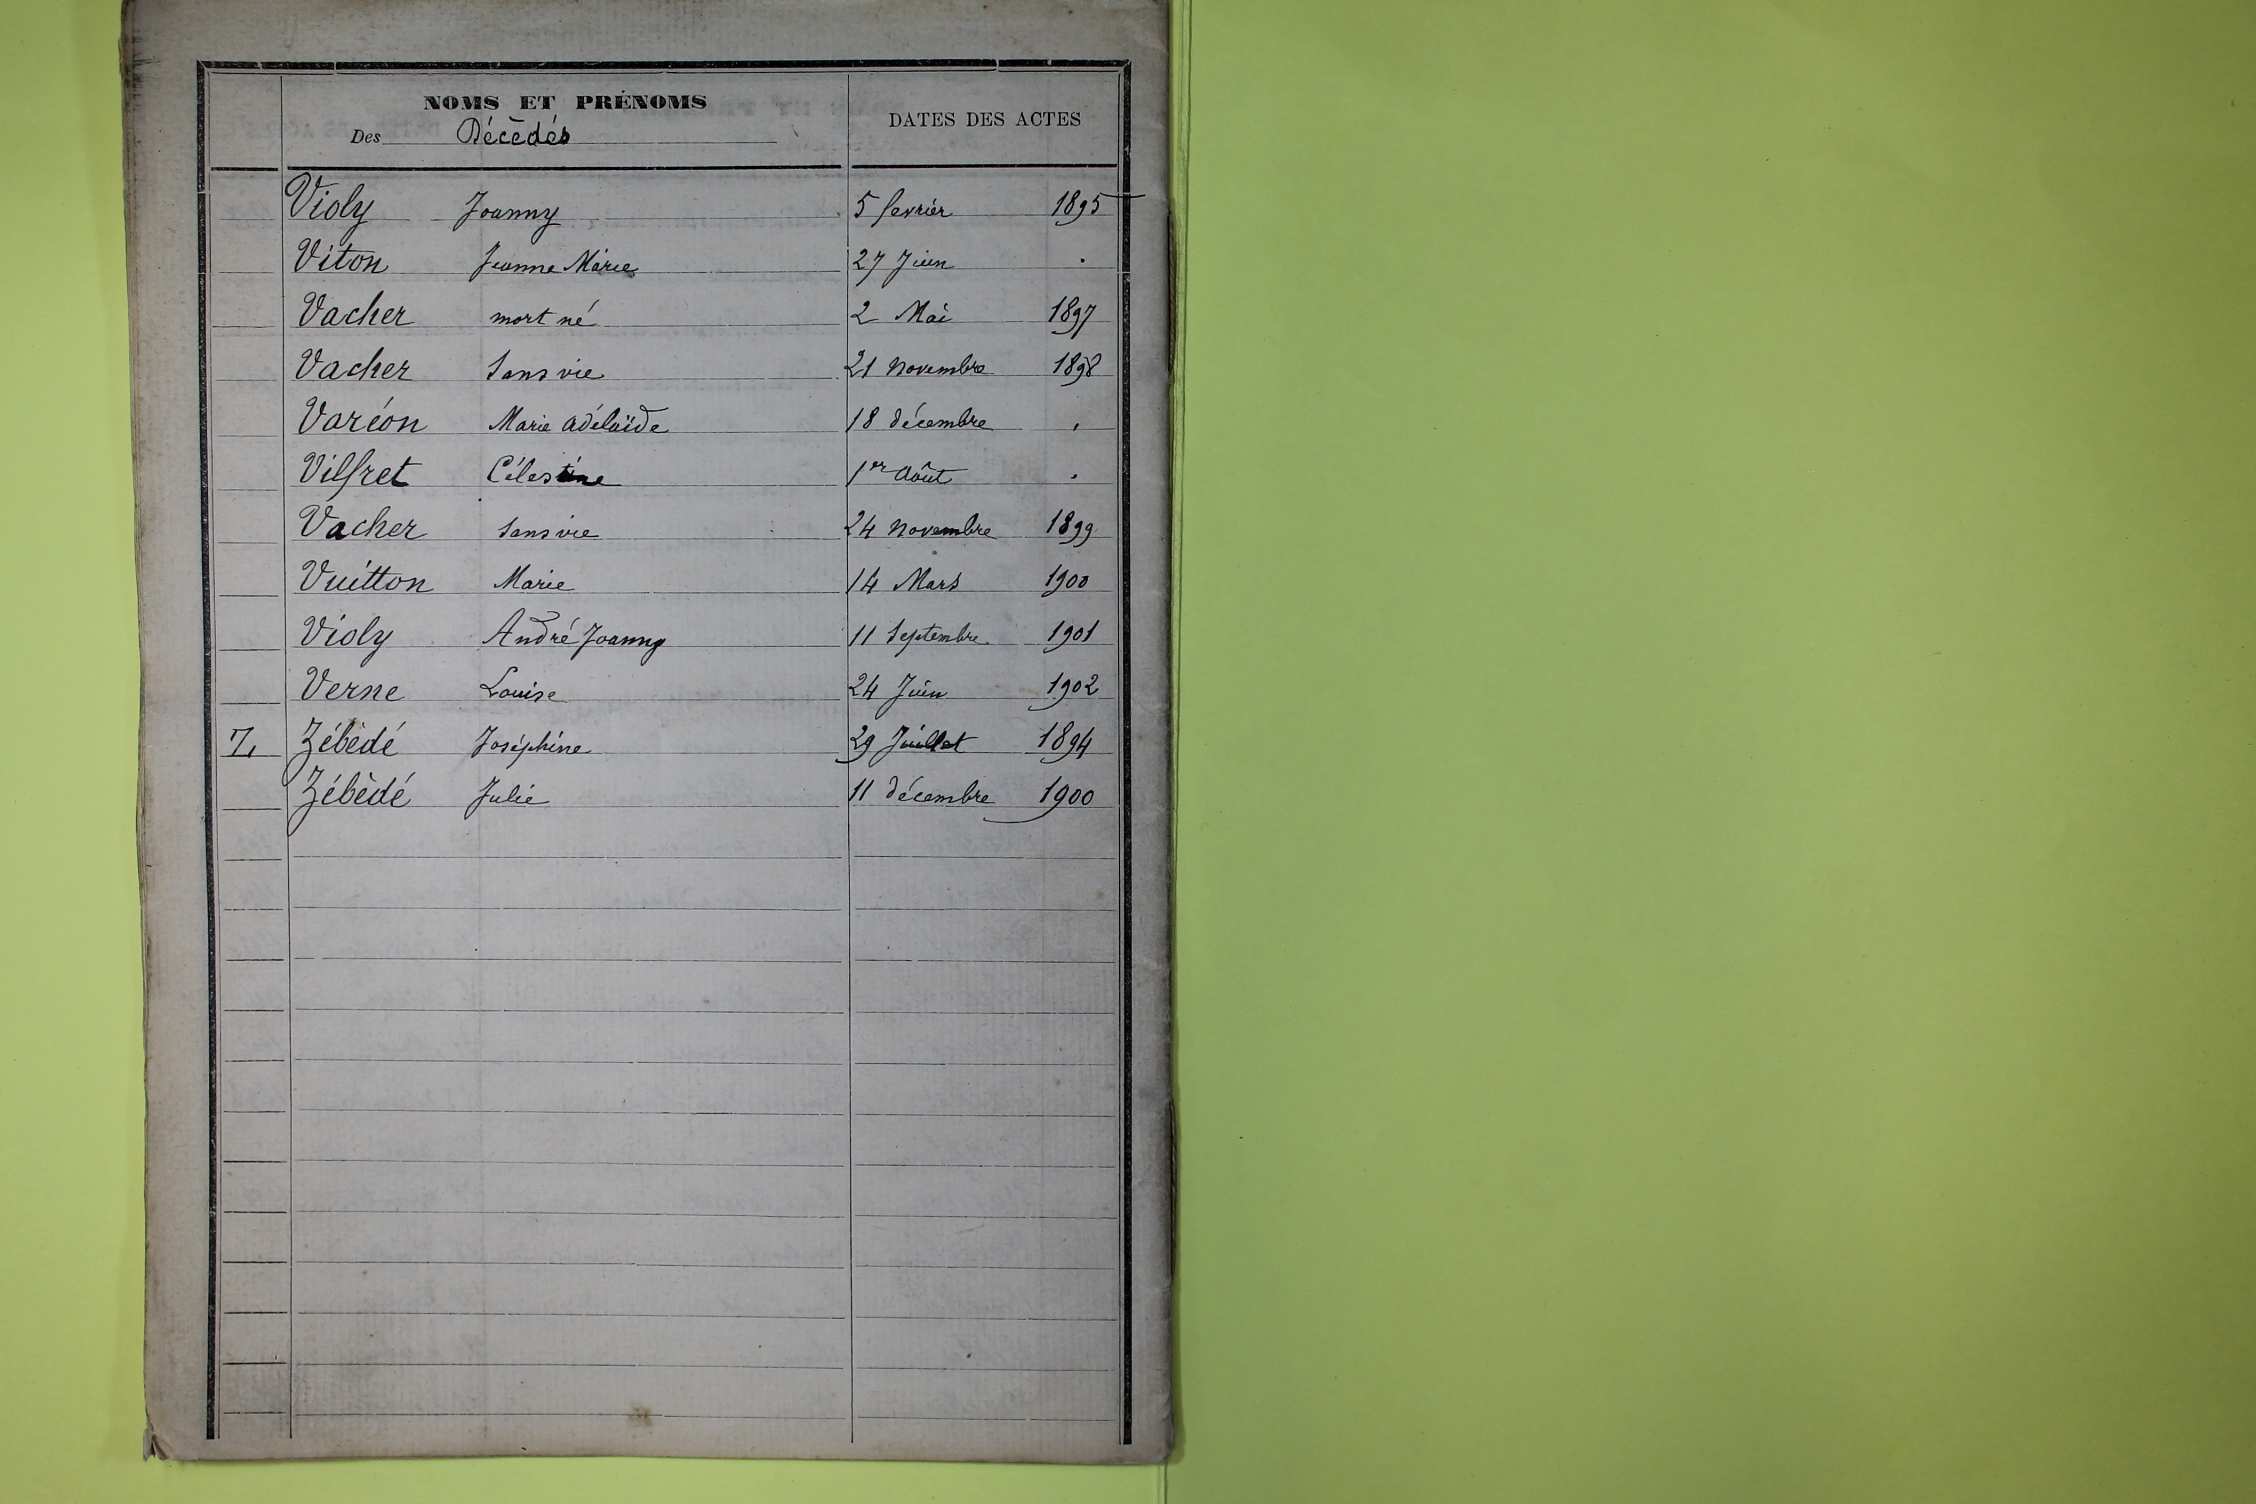 NOMS ET PRÉNOMS
Des Décédés
DATES DES ACTES
Violy Joanny 5 fevrier 1895
Viton Jeanne Marie 27 Juin .
Vacher mort né 2 Mai 1897
Vacher Sans vie 21 Novembre 1898
Varéon Marie Adélaïde 18 décembre .
Vilfret Célestine 1er Août .
Vacher Sans vie 24 Novembre 1899
Vuitton Marie 14 Mars 1900
Violy André Joanny 11 Septembre 1901
Verne Louise 24 Juin 1902
Z Zébèdé Joséphine 29 Juillet 1894
Zébèdé Julie 11 décembre 1900